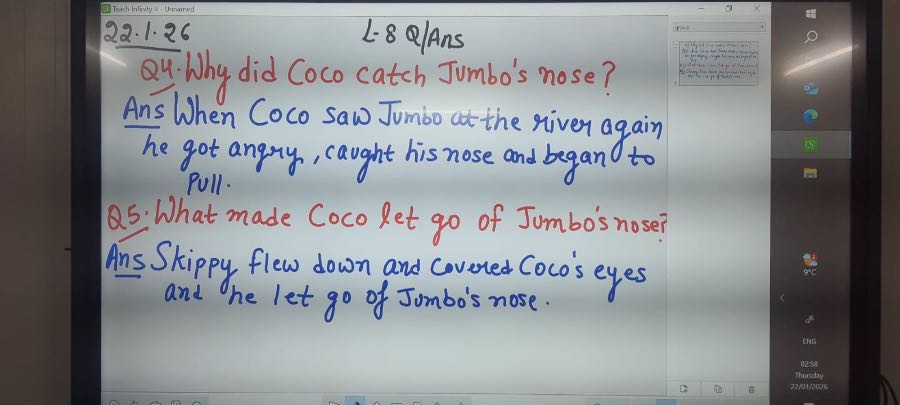 Teach Infinity II - Unnamed
22.1.26
L-8 Q/Ans
Q4. Why did Coco catch Jumbo's nose?
Ans When Coco saw Jumbo at the river again
he got angry, caught his nose and began to
Pull.
Q5. What made Coco let go of Jumbo's nose?
Ans Skippy flew down and covered Coco's eyes
and he let go of Jumbo's nose.
9°C
ENG
02:58
Thursday
22/01/2026